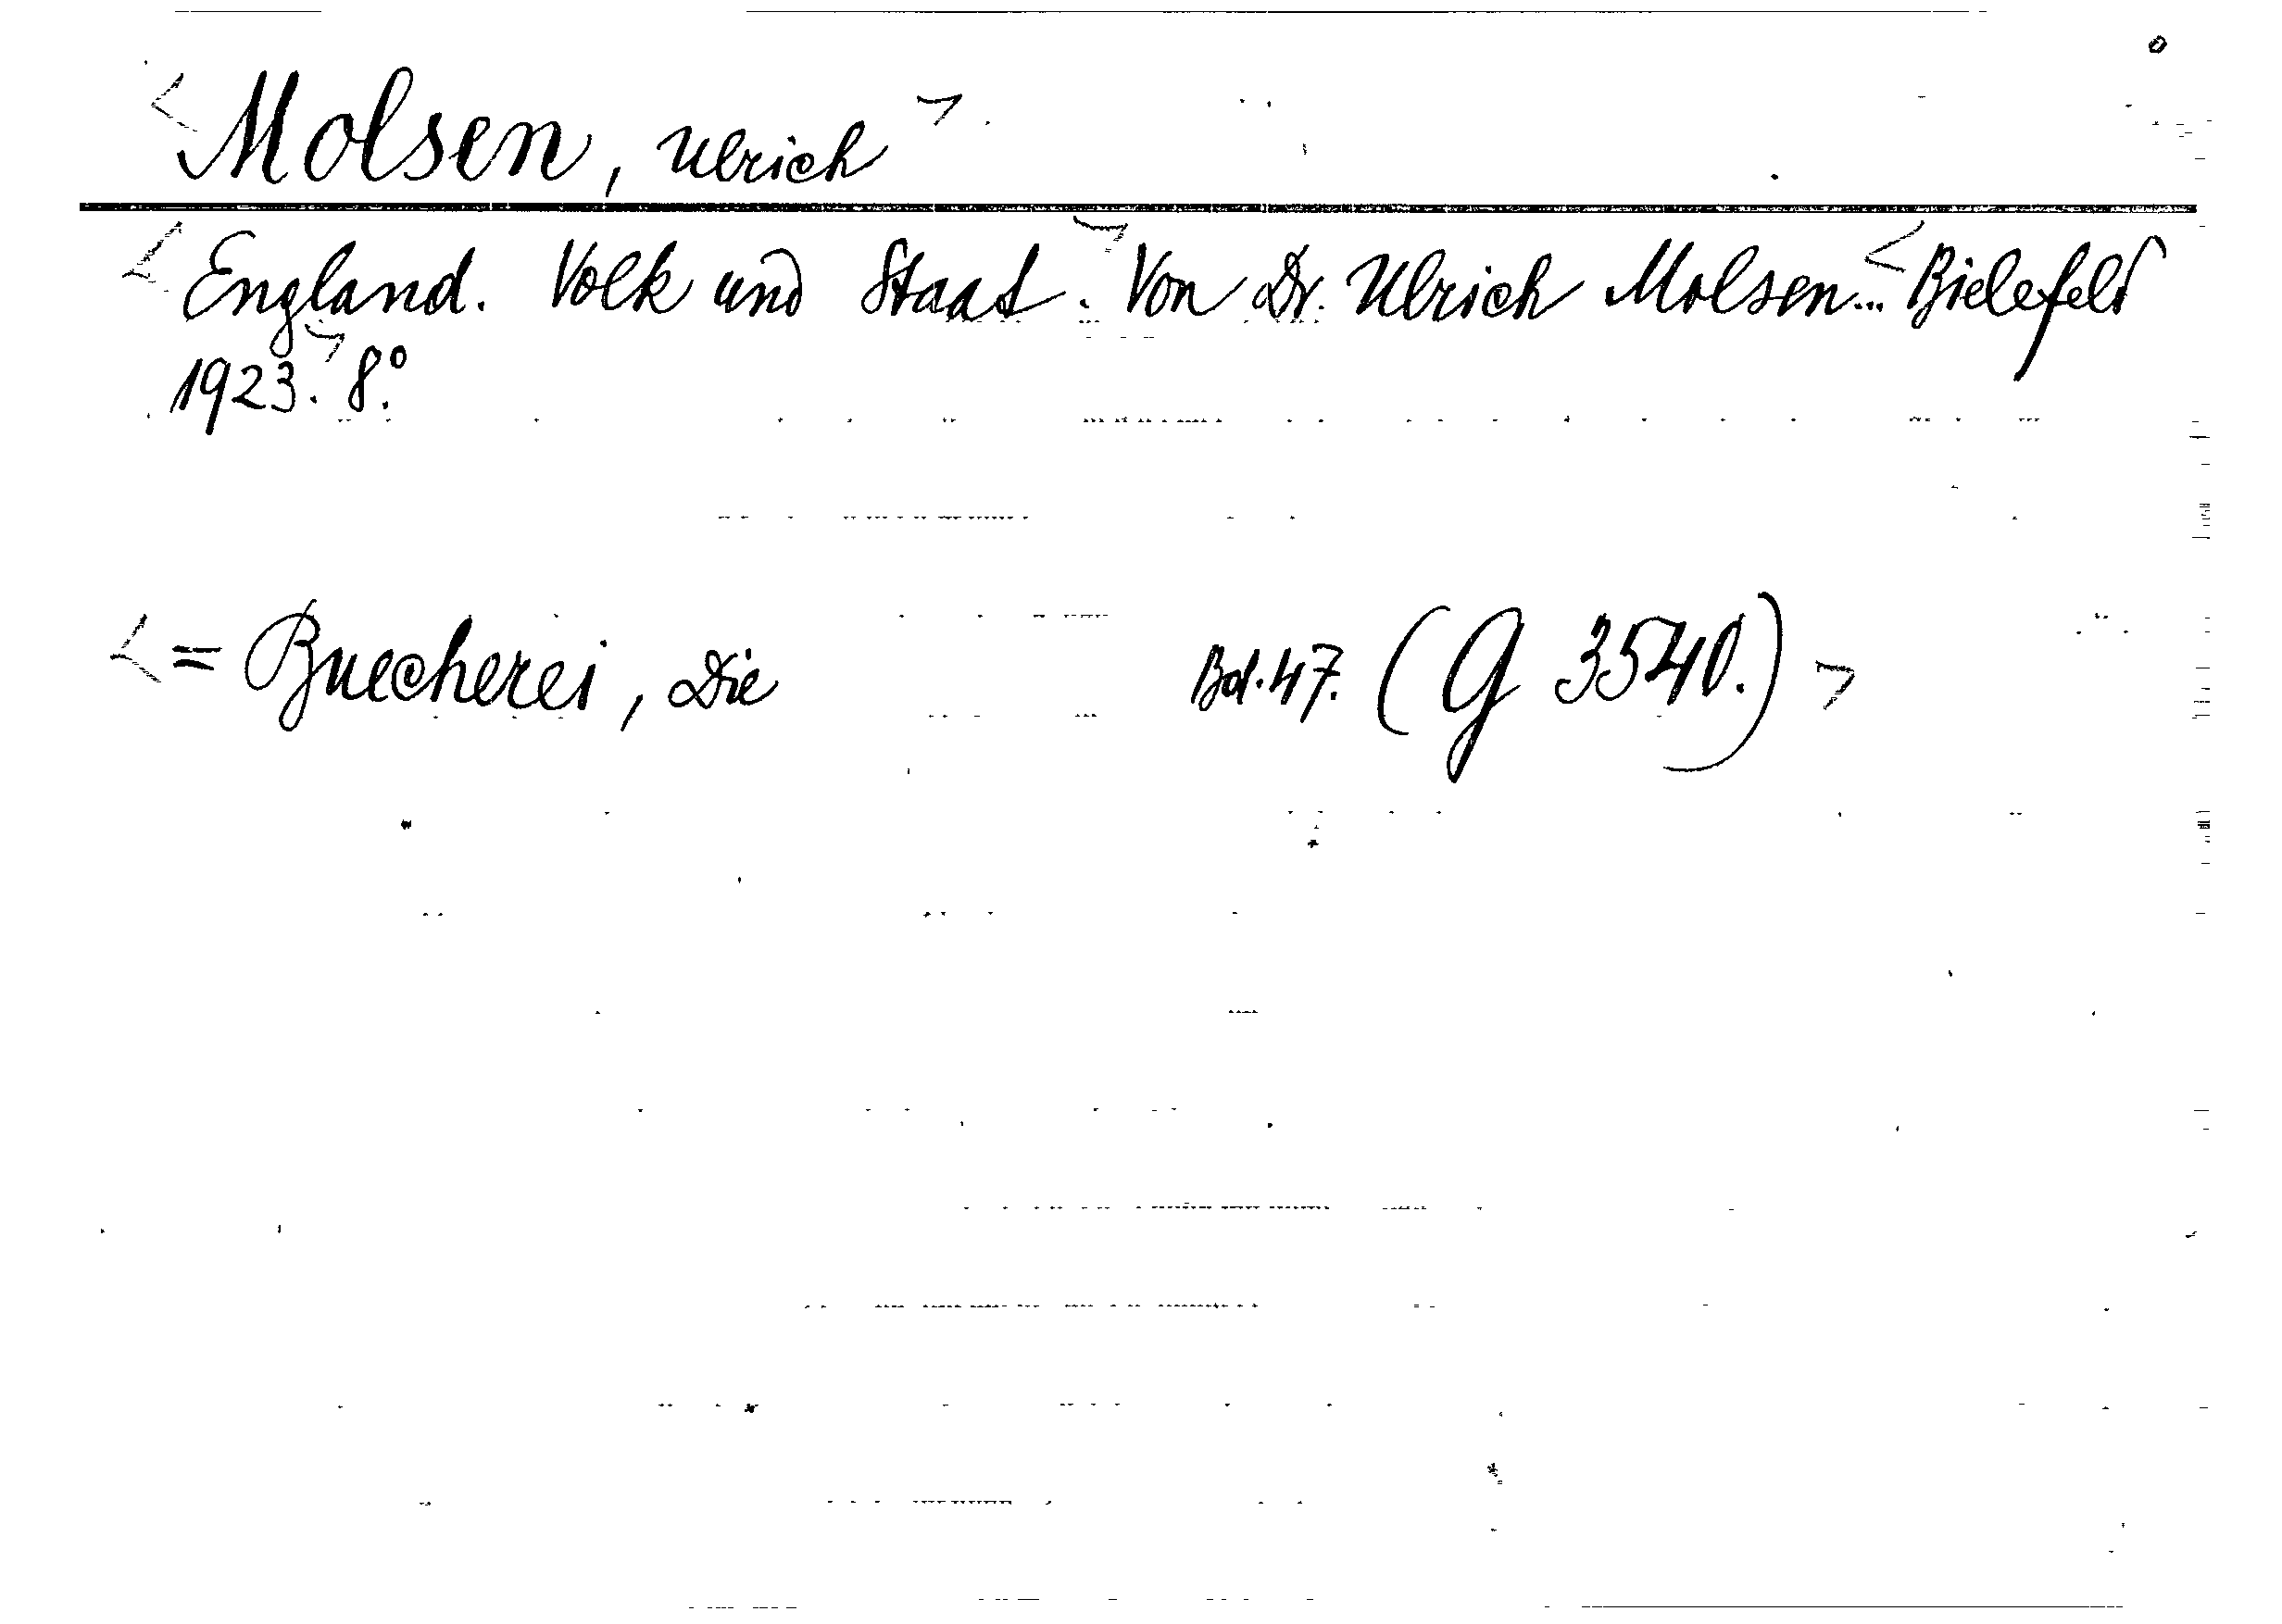 <Molsen, Ulrich>
<England. Volk und Staat.> Von Dr. Ulrich Molsen... <Bielefeld
1923.> 8º.
<= Buecherei, Die Bd. 47. (G 3540.)>